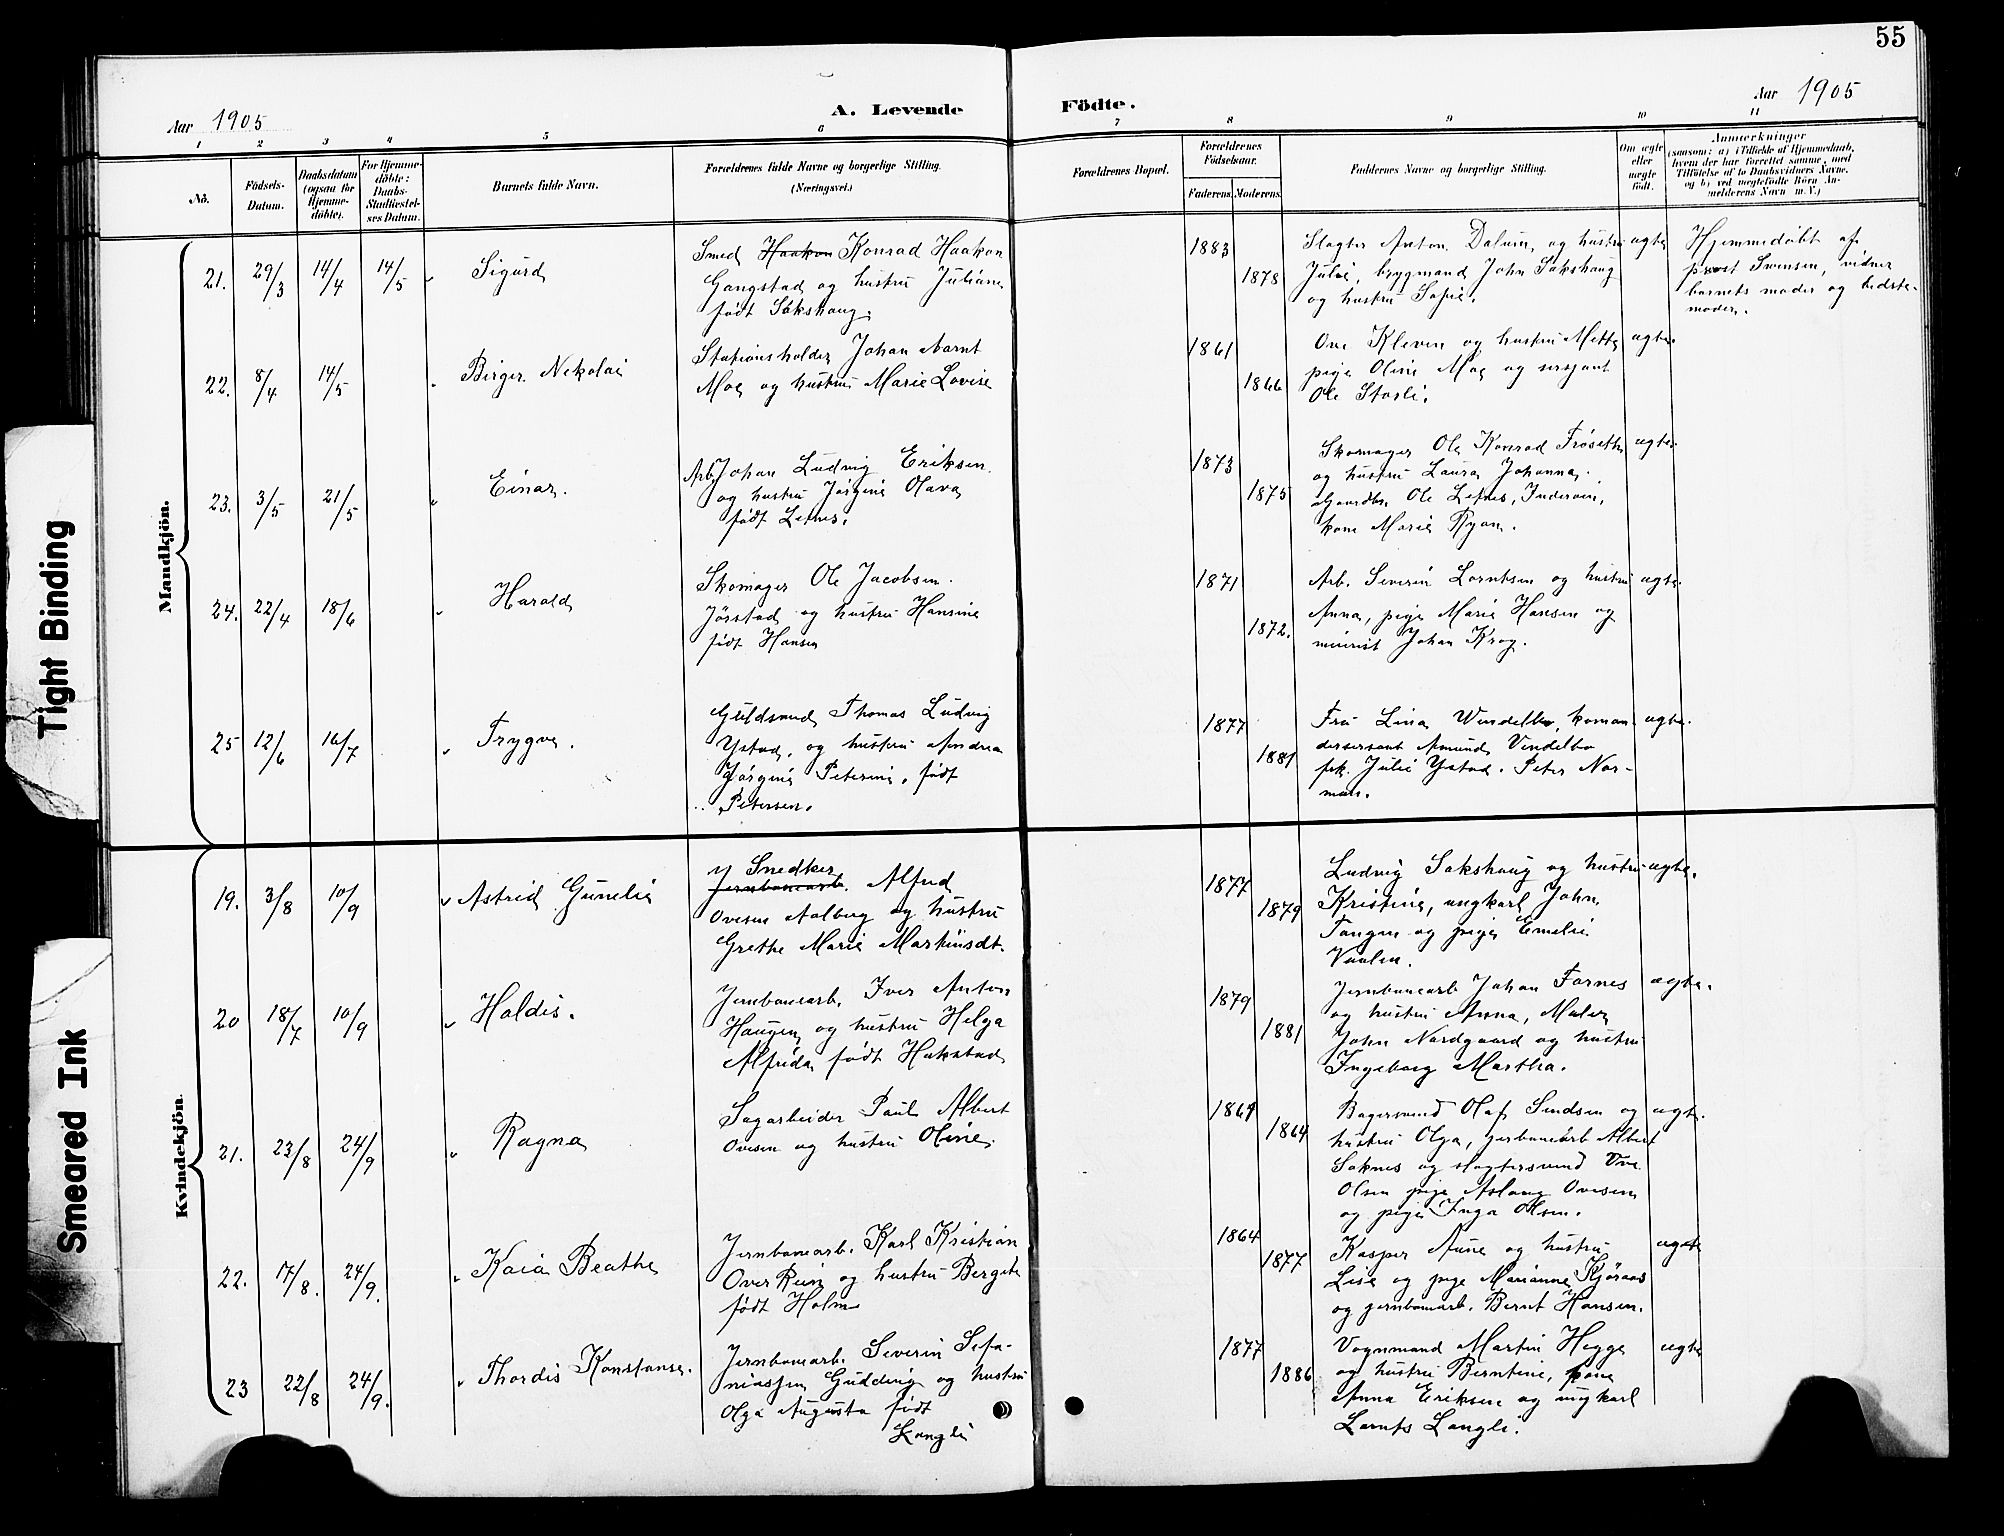 55
Aar 1905
A. Levende
Födte.
Aar 1905
1 2 3 4 5 6 7 8 9 10 11
No.
Fødsels-
Datum.
Daabsdatum
(ogsaa for
Hjemme-
døbte).
For Hjemme-
döbte:
Daabs-
Stadfæstel-
ses Datum.
Barnets fulde Navn.
Forældrenes fulde Navne og borgerlige Stilling.
(Næringsvei.)
Forældrenes Bopæl.
Forældrenes
Fødselsaar.
Faderens
Moderens
Faddernes Navne og borgerlige Stilling.
Om ægte
eller
uægte
født.
Anmærkninger
(saasom: a) i Tilfælde af Hjemmedaab,
hvem der har forrettet samme, med
Tilföielse af to Daabsvidners Navne.
og b) ved uægtefödte Börn An-
melderens Navn m. V.)
Mandkjön.
21. 29/3 14/4 14/5 Sigurd
Smed Haakon Konrad Haakon
Gangstad og hustru Juliane
født Sakshaug.
1883
1878
Slagter Anton Dalum, og hustru
Julie, brygmand John Sakshaug
og hustru Sofie.
ægte
Hjemmedøbt af
prost Svensen, vidner
barnets moder og bedste-
moder.
22. 8/4 14/5 Birger Nekolai
Stationsholder Johan Aarnt
Moe og hustru Marie Lovise
1861
1866
Ove Kleven og hustru Mette
pige Oline Moe og sersjant
Ole Stosli.
ægte
23. 3/5 21/5 Einar.
Arb. Johan Ludvig Eriksen
og hustru Jørgine Olava
født Letnes.
1873
1875
Skomager Ole Konrad Frøseth
og hustru Laura Johanna.
Gaardbr. Ole Letnes, Inderøen,
kone Marie Ryan.
ægte
24. 22/4 18/6 Harald
Skomager Ole Jacobsen
Jørstad og hustru Hansine
født Hansen
1871
1872.
Arb. Severin Lorntsen og hustru
Anna, pige Marie Hansen og
meierist Johan Krog.
ægte
25 12/6 16/7 Trygve.
Guldsmed Thomas Ludvig
Ystad, og hustru Andrea
Jørgine Petrine, født
Petersen.
1877
1881
Fru Lina Windelbo, koman-
dersersant Amund Vendelbo
frk. Julie Ystad. Peter Nor-
man.
ægte.
Kvindekjön.
19. 3/8 10/9 Astrid Gunelie
Snedker
Jernbanearb. Alfred
Ovesen Aalberg og hustru
Grethe Marie Martinsdt.
1877
1879
Ludvig Sakshaug og hustru
Kristine, ungkarl John
Tangen og pige Emelie
Vaalen.
ægte.
20 18/7 10/9 Haldis.
Jernbanearb. Iver Anton
Haugen og hustru Helga
Alfrida født Hakstad
1879
1881
Jernbanearb Johan Fornes
og hustru Anna, Maler
John Nordgaard og hustru
Ingeborg Martha.
ægte.
21. 23/8 24/9 Ragna
Sagarbeider Paul Albert
Ovesen og hustru Oline.
1869
1864
Bagersvend Olaf Sendsen og
hustru Olga, jernbanearb Albert
Saknes og slagtersvend Ove
Olsen pige Aslaug Ovesen
og pige Inga Olsen.
ægte.
22. 17/8. 24/9. Kaia Beathe
Jernbanearb. Karl Kristian
Over Rein og hustru Bergite
født Holm
1864
1877
Kasper Aune og hustru
Lise og pige Marianne Kjøraas
og jernbanearb. Bernt Hansen.
ægte
23 22/8 24/9. Thordis Konstanse.
Jernbanearb. Severin Sefa-
niassen Gudding og hustru
Olga Augusta født
Langli
1877
1886
Vognmand Martin Hegge
og hustru Berntine, kone
Anna Eriksen og ungkarl
Lornts Langli.
ægte
Tight Binding
Smeared Ink